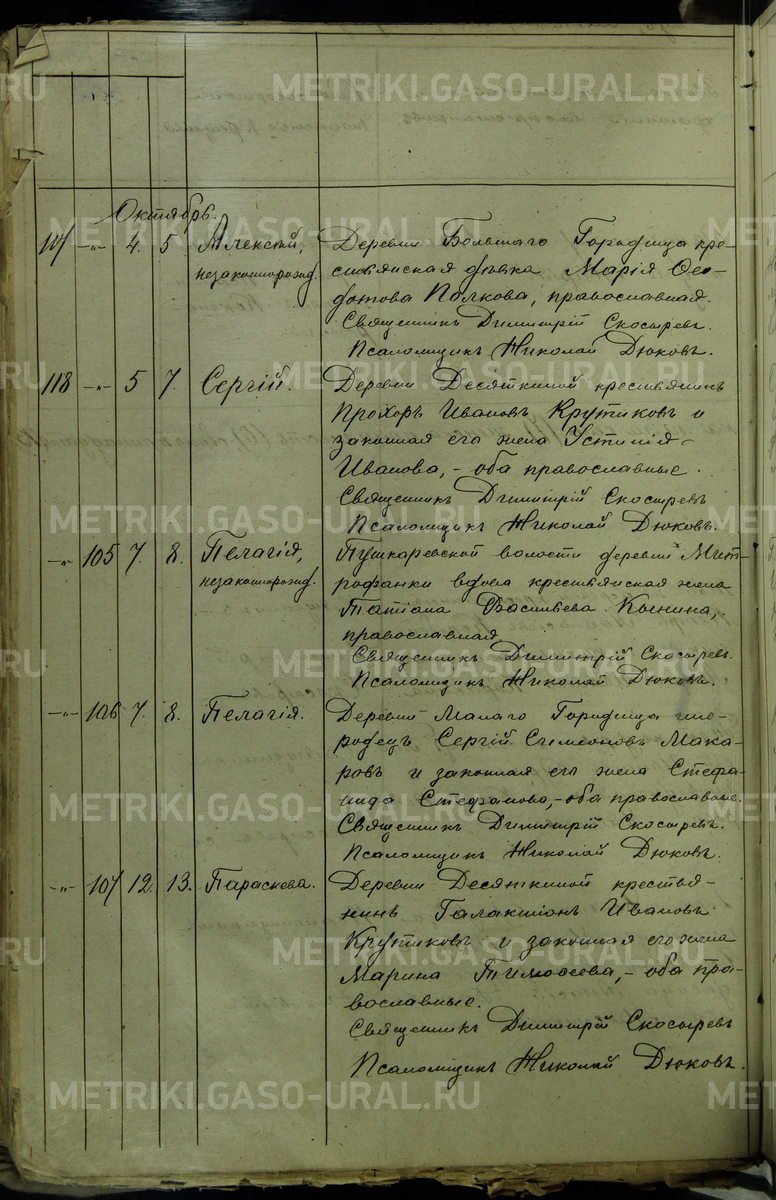 Октябрь.
117 -"- 4. 5 Алексѣй, Деревни Большаго Городища кре-
незаконнорожд. стьянская дѣвка Марія Ѳео-
дотова Полкова, православная.
Священникъ Димитрій Скосыревъ.
Псаломщикъ Николай Дюковъ.
118 -"- 5 7. Сергій. Деревни Десяткиной крестьянинъ
Прохоръ Ивановъ Крутиковъ и
законная его жена Устинія
Иванова, - оба православные.
Священникъ Димитрій Скосыревъ
Псаломщикъ Николай Дюковъ.
-"- 105 7. 8. Пелагія, Пушкаревской волости деревни Мит-
незаконнорожд. рофанки вдова крестьянская жена
Татіана Васильева Кынина,
православная.
Священникъ Димитрій Скосыревъ.
Псаломщикъ Николай Дюковъ.
-"- 106 7. 8. Пелагія. Деревни Малаго Городища ино-
родецъ Сергій Симеоновъ Мака-
ровъ и законная его жена Стефа-
нида Стефанова, - оба православные.
Священникъ Димитрій Скосыревъ.
Псаломщикъ Николай Дюковъ.
-"- 107 12. 13. Параскева. Деревни Десяткиной крестья-
нинъ Галактіонъ Ивановъ
Крутиковъ и законная его жена
Марина Тимоѳеева, - оба пра-
вославные.
Священникъ Димитрій Скосыревъ
Псаломщикъ Николай Дюковъ.
METRIKI.GASO-URAL.RU